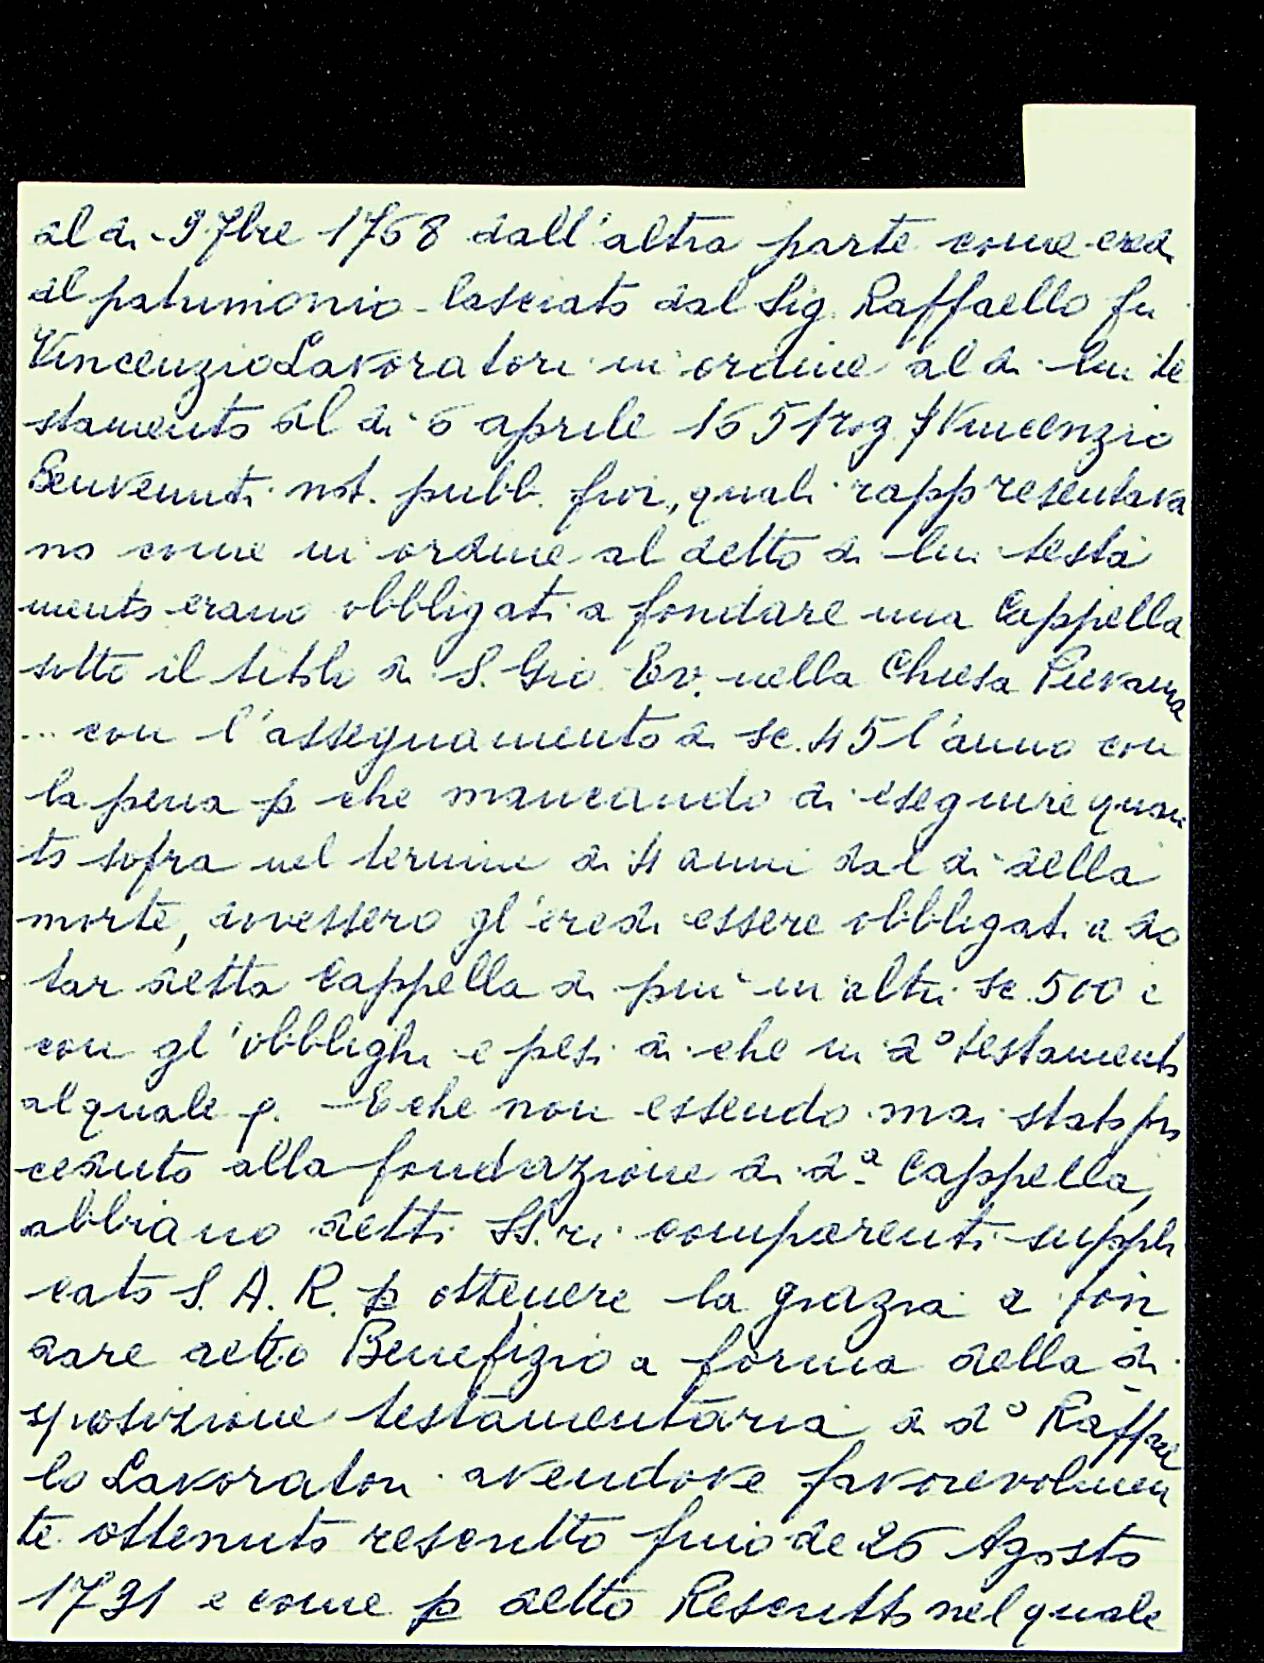 al dì 9 7bre 1768 dall'altra parte come eredi
al patrimonio lasciato dal Sig. Raffaello fu
Vincenzio Lavoratori in ordine al di lui te
stamento al dì 6 aprile 1651 rog. Vincenzio
Benvenuti not. pubb. fior., quali rappresentava
no come in ordine al detto di lui testa
mento erano obbligati a fondare una Cappella
sotto il titolo di S. Gio. Ev. nella Chiesa Pievana
... con l'assegnamento di sc. 45 l'anno con
la pena p che mancando di eseguire quan
to sopra nel termine di 4 anni dal dì della
morte, dovessero gl'eredi essere obbligati a do
tar detta Cappella di più in altri sc. 500 e
con gl'obblighi e pesi di che in do testamento
al quale p. - E che non essendo mai stato pro
ceduto alla fondazione di da Cappella,
abbiano detti SS.ri comparenti suppli
cato S. A. R. p ottenere la grazia a fon
dare detto Benefizio a forma della di
sposizione testamentaria di do Raffael
lo Lavoratori avendone favorevolmen
te ottenuto rescritto fino de 26 Agosto
1731 e come p detto Rescritto nel quale